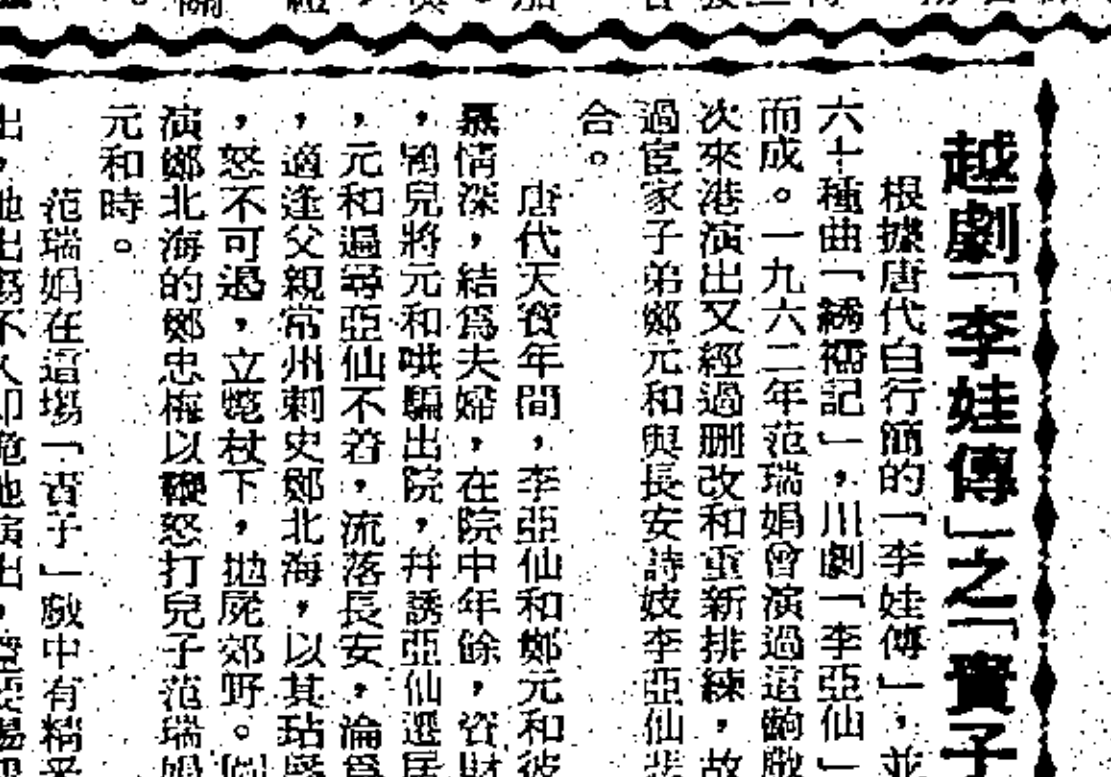 越劇「李娃傳」之「責子
根據唐代白行簡的「李娃傳」，並
六十種曲「綉襦記」，川劇「李亞仙」
而成。一九六二年范瑞娟曾演過這齣戲
次來港演出又經過刪改和重新排練，故
過宦家子弟鄭元和與長安詩妓李亞仙悲
合。
唐代天寳年間，李亞仙和鄭元和彼
慕情深，結爲夫婦，在院中年餘，資財
，鴇兒將元和哄騙出院，幷誘亞仙遷居
，元和遍尋亞仙不着，流落長安，淪爲
，適逢父親常州刺史鄭北海，以其玷辱
，怒不可遏，立斃杖下，拋屍郊野。
演鄭北海的鄭忠梅以鞭怒打兒子范瑞娟
元和時。
范瑞娟在這塲「責子」戲中有精采
出，